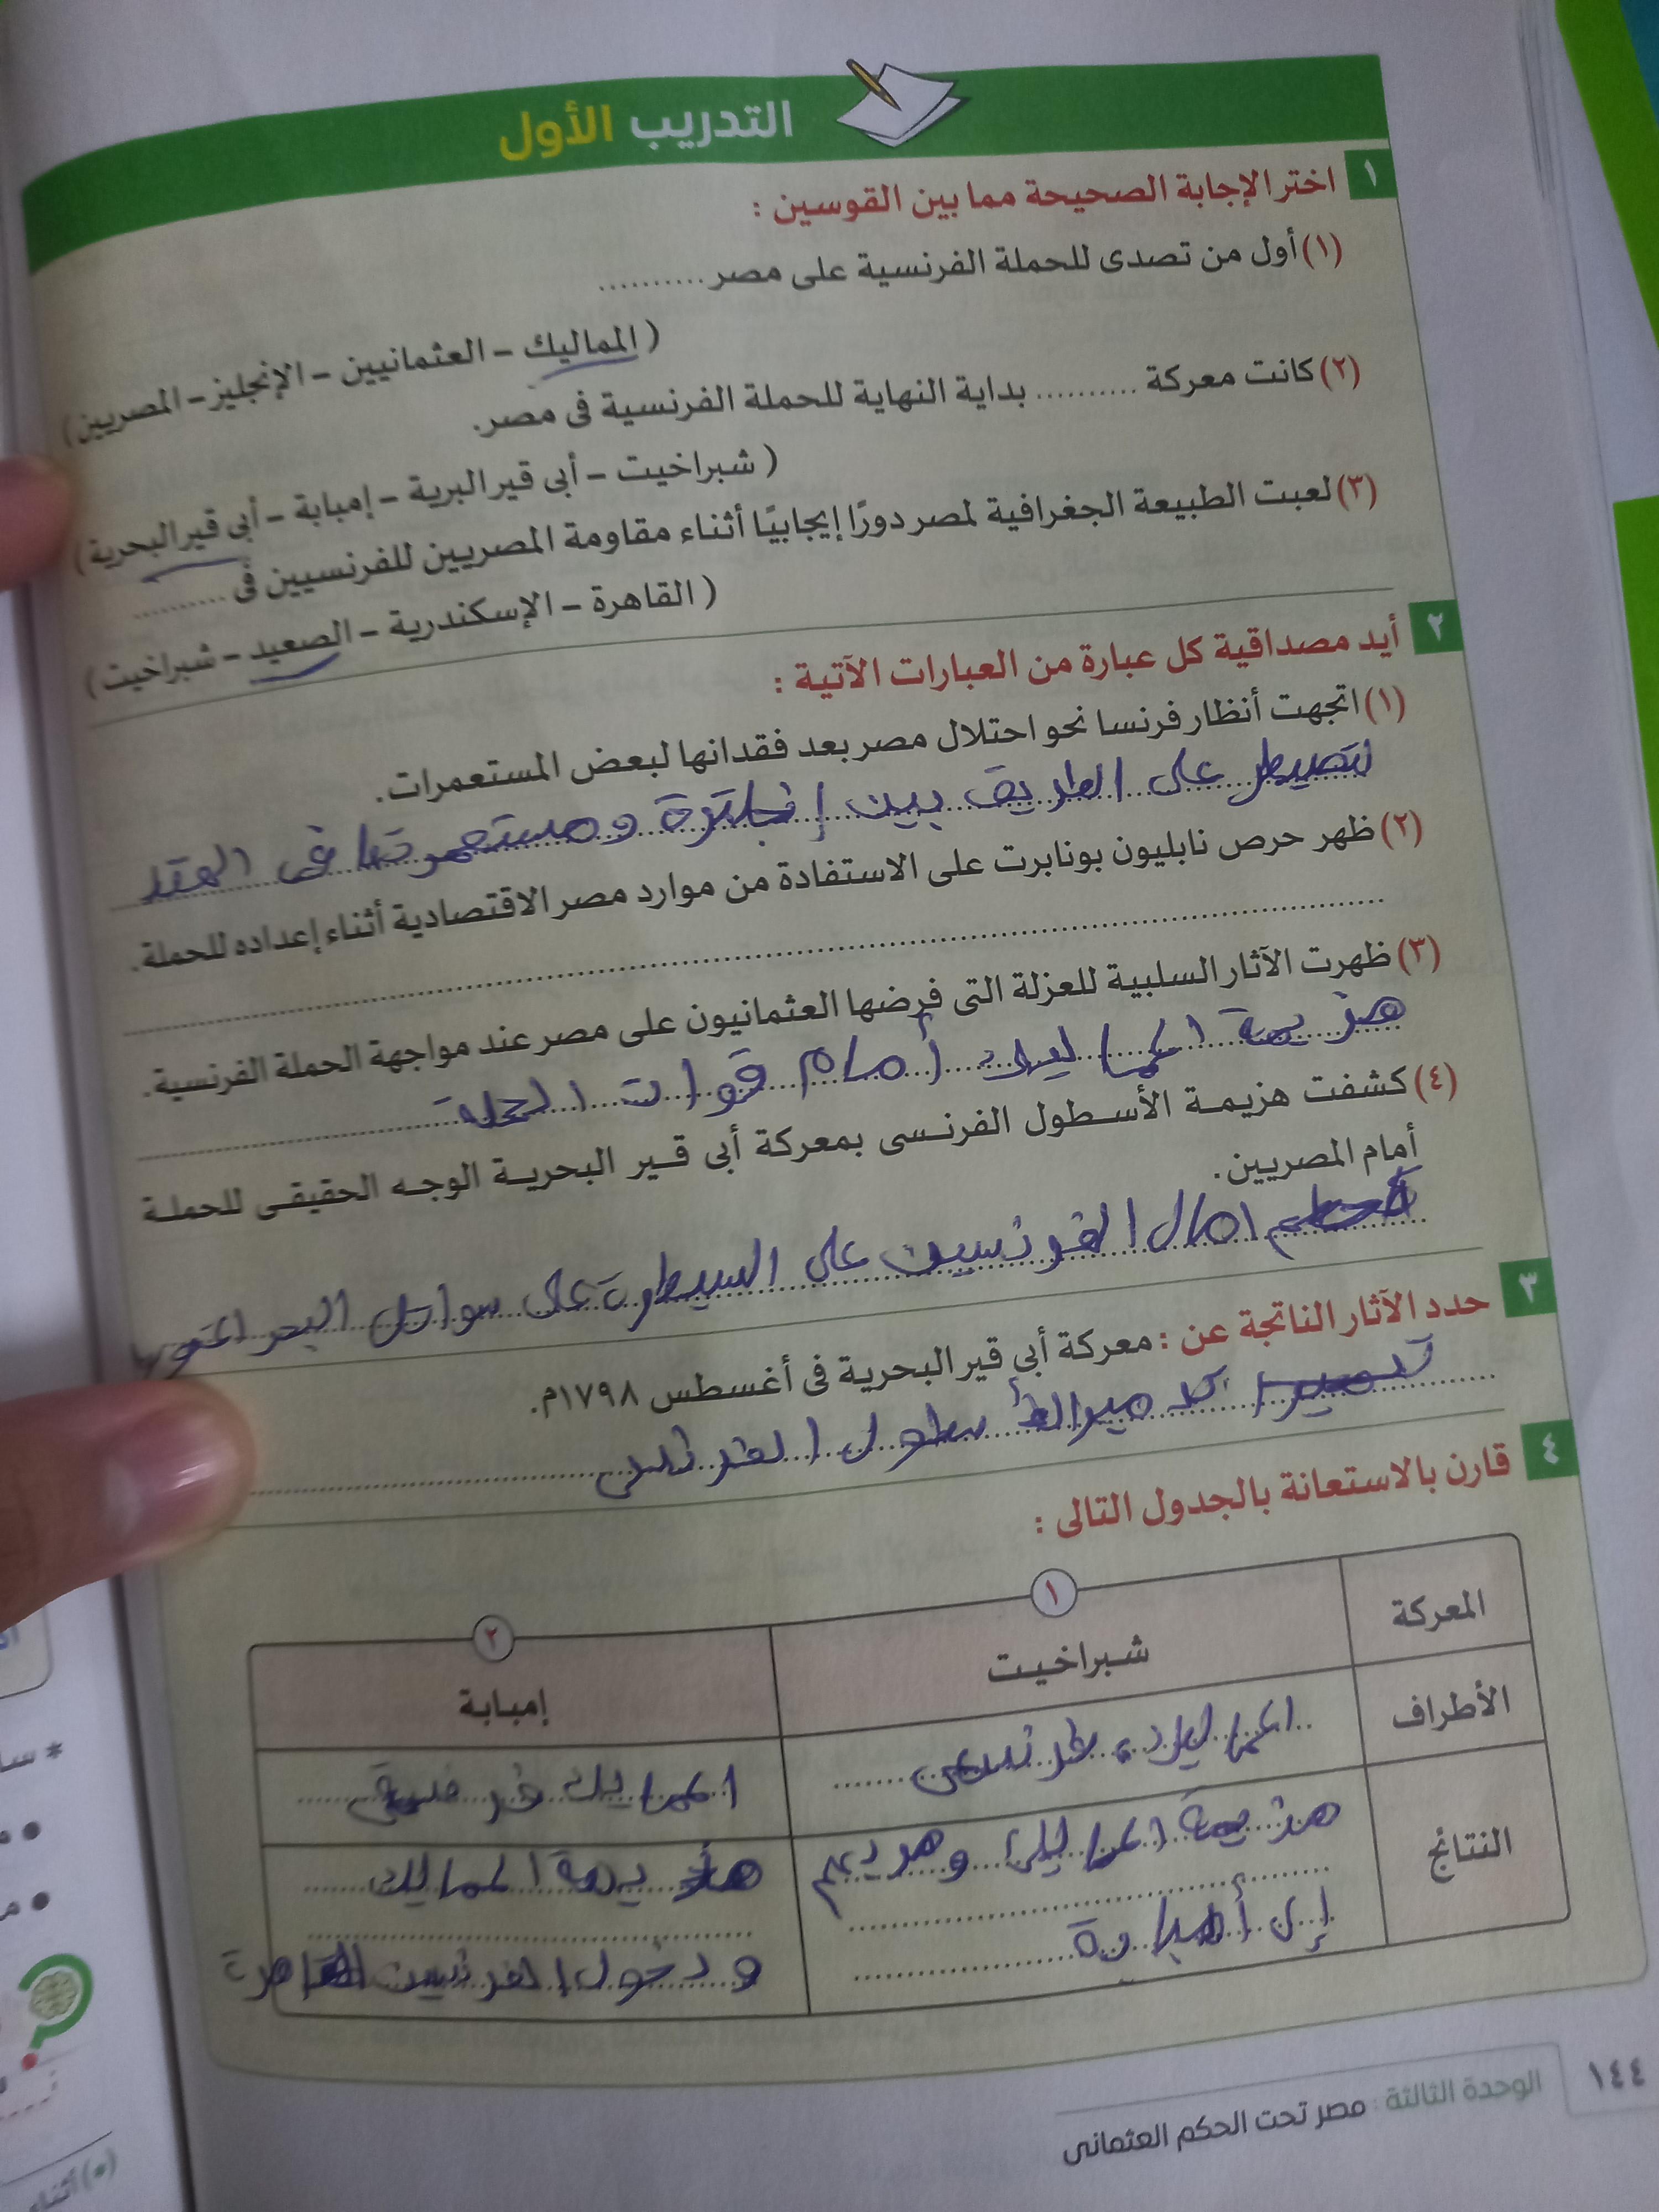 التدريب الأول
١ اختر الإجابة الصحيحة مما بين القوسين :
(١) أول من تصدى للحملة الفرنسية على مصر ..........
( المماليك – العثمانيين – الإنجليز – المصريين )
(٢) كانت معركة .......... بداية النهاية للحملة الفرنسية فى مصر.
( شبراخيت – أبى قير البرية – إمبابة – أبى قير البحرية )
(٣) لعبت الطبيعة الجغرافية لمصر دورًا إيجابيًا أثناء مقاومة المصريين للفرنسيين فى ..........
( القاهرة – الإسكندرية – الصعيد – شبراخيت )
٢ أيد مصداقية كل عبارة من العبارات الآتية :
(١) اتجهت أنظار فرنسا نحو احتلال مصر بعد فقدانها لبعض المستعمرات.
لتصيطر على الطريق بين إنجلترة ومستعمرتها فى الهند
(٢) ظهر حرص نابليون بونابرت على الاستفادة من موارد مصر الاقتصادية أثناء إعداده للحملة.
(٣) ظهرت الآثار السلبية للعزلة التى فرضها العثمانيون على مصر عند مواجهة الحملة الفرنسية.
هزيمة المماليك أمام قوات الحملة
(٤) كشفت هزيمة الأسطول الفرنسى بمعركة أبى قير البحرية الوجه الحقيقى للحملة
أمام المصريين.
امال الفرنسين على السيطرة على سواحل البحر
٣ حدد الآثار الناتجة عن : معركة أبى قير البحرية فى أغسطس ١٧٩٨م.
الفرنسى
٤ قارن بالاستعانة بالجدول التالى :
المعركة ١ شبراخيت ٢ إمبابة
الأطراف المماليك، فرنسى المماليك فرنسى
النتائج هزيمة المماليك وهروبهم هزيمة المماليك
إلى أمبابة ودخول الفرنسين القاهرة
١٤٤ الوحدة الثالثة : مصر تحت الحكم العثمانى
(*) أثناء